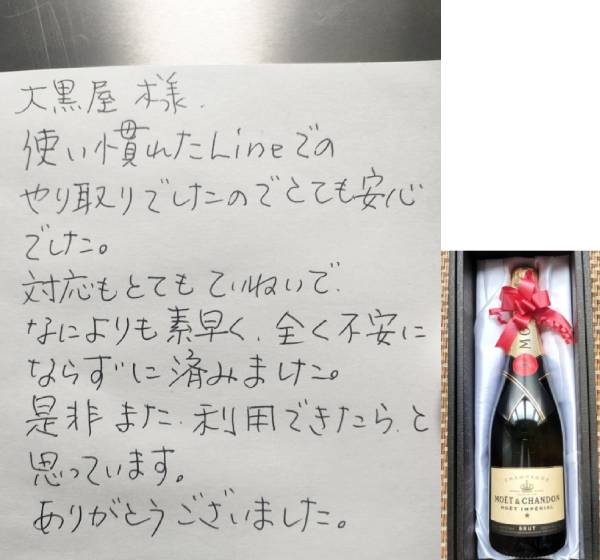 大黒屋 様.
使い慣れたLineでの
やり取りでしたのでとても安心
でした。
対応もとてもていねいで、
なによりも素早く、全く不安に
ならずに済みました。
是非また、利用できたら、と
思っています。
ありがとうございました。
CHAMPAGNE
MOËT & CHANDON
MOËT IMPÉRIAL
BRUT